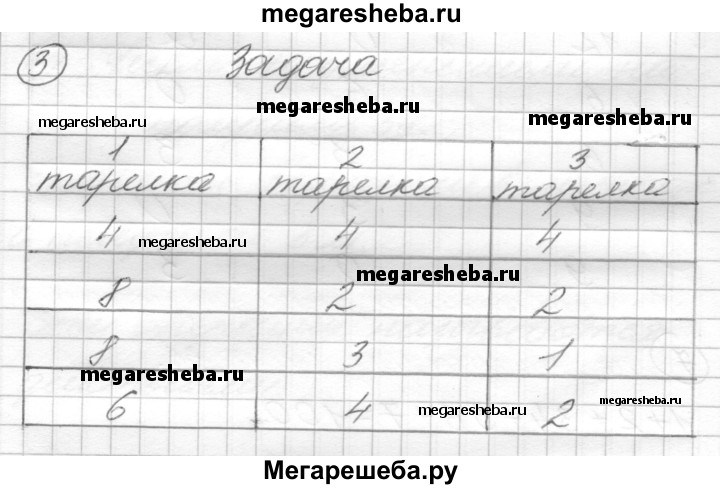 megaresheba.ru
3 Задача
megaresheba.ru
megaresheba.ru
megaresheba.ru
1 2 3
тарелка тарелка тарелка
4 megaresheba.ru 4 4
megaresheba.ru
8 2 2
8 3 1
megaresheba.ru
6 4 megaresheba.ru 2 megaresheba.ru
Мегарешеба.ру